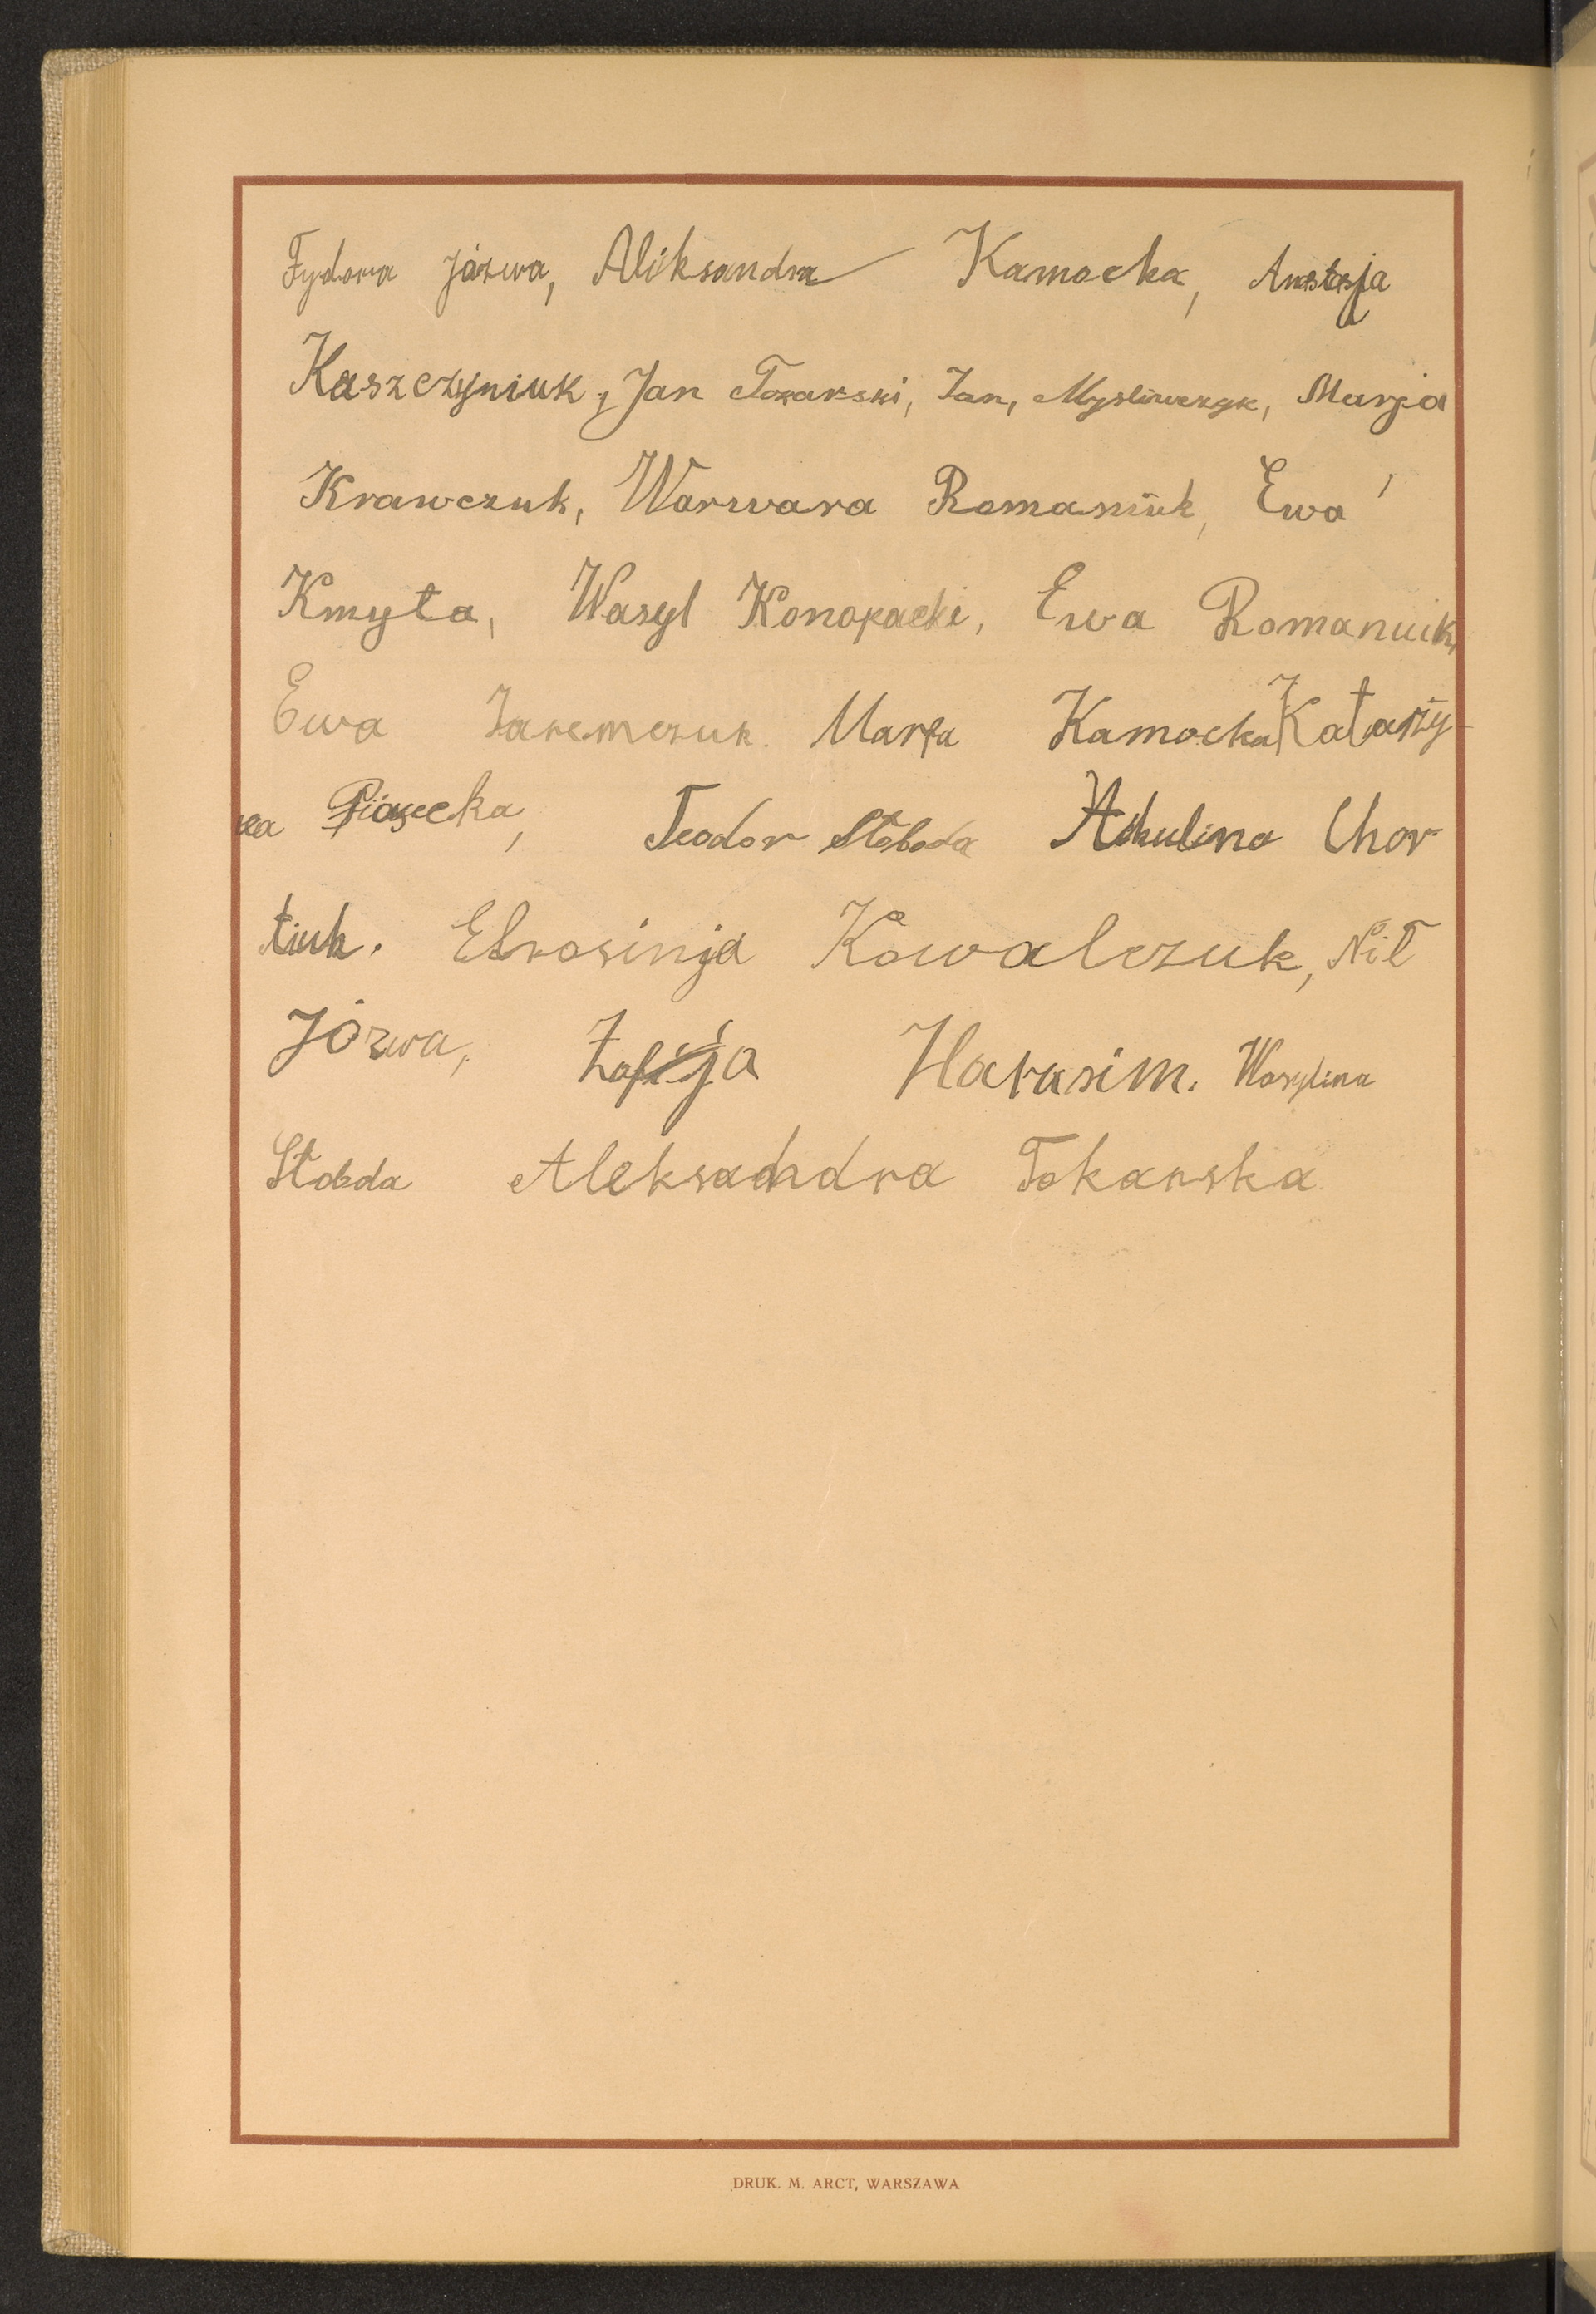 Fydora Józwa, Aliksandra Kamocka, Anastasja
Kaszczyniuk, Jan Tozarski, Jan, Mysliwczyk, Marja
Krawczuk, Warwara Romaniuk, Ewa
Kmyta, Wasyl Konopacki, Ewa Romaniuk,
Ewa Jaremczuk. Marfa Kamocka Katarzy-
na Piasecka, Teodor Stoboda Akulina Chor
tiuk. Ebrosinja Kowalczuk, Nił
Józwa, Zofija Harasim. Wasylina
Stobda Aleksandra Tokarska
DRUK. M. ARCT, WARSZAWA